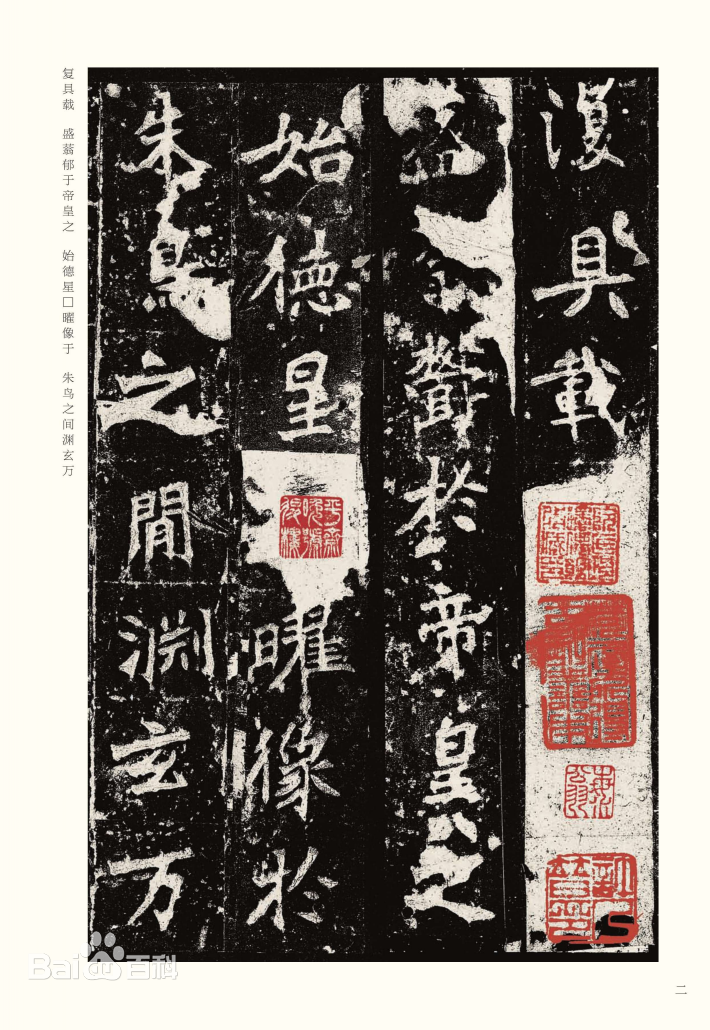 復具載
盛鬱於帝皇之
始德星曜像於
朱鳥之閒淵玄万
复具载 盛蓊郁于帝皇之 始德星□曜像于 朱鸟之间渊玄万
二
Bai百科